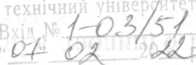 технічний університет
Вхід № 1-03/51
"07" 02 2022